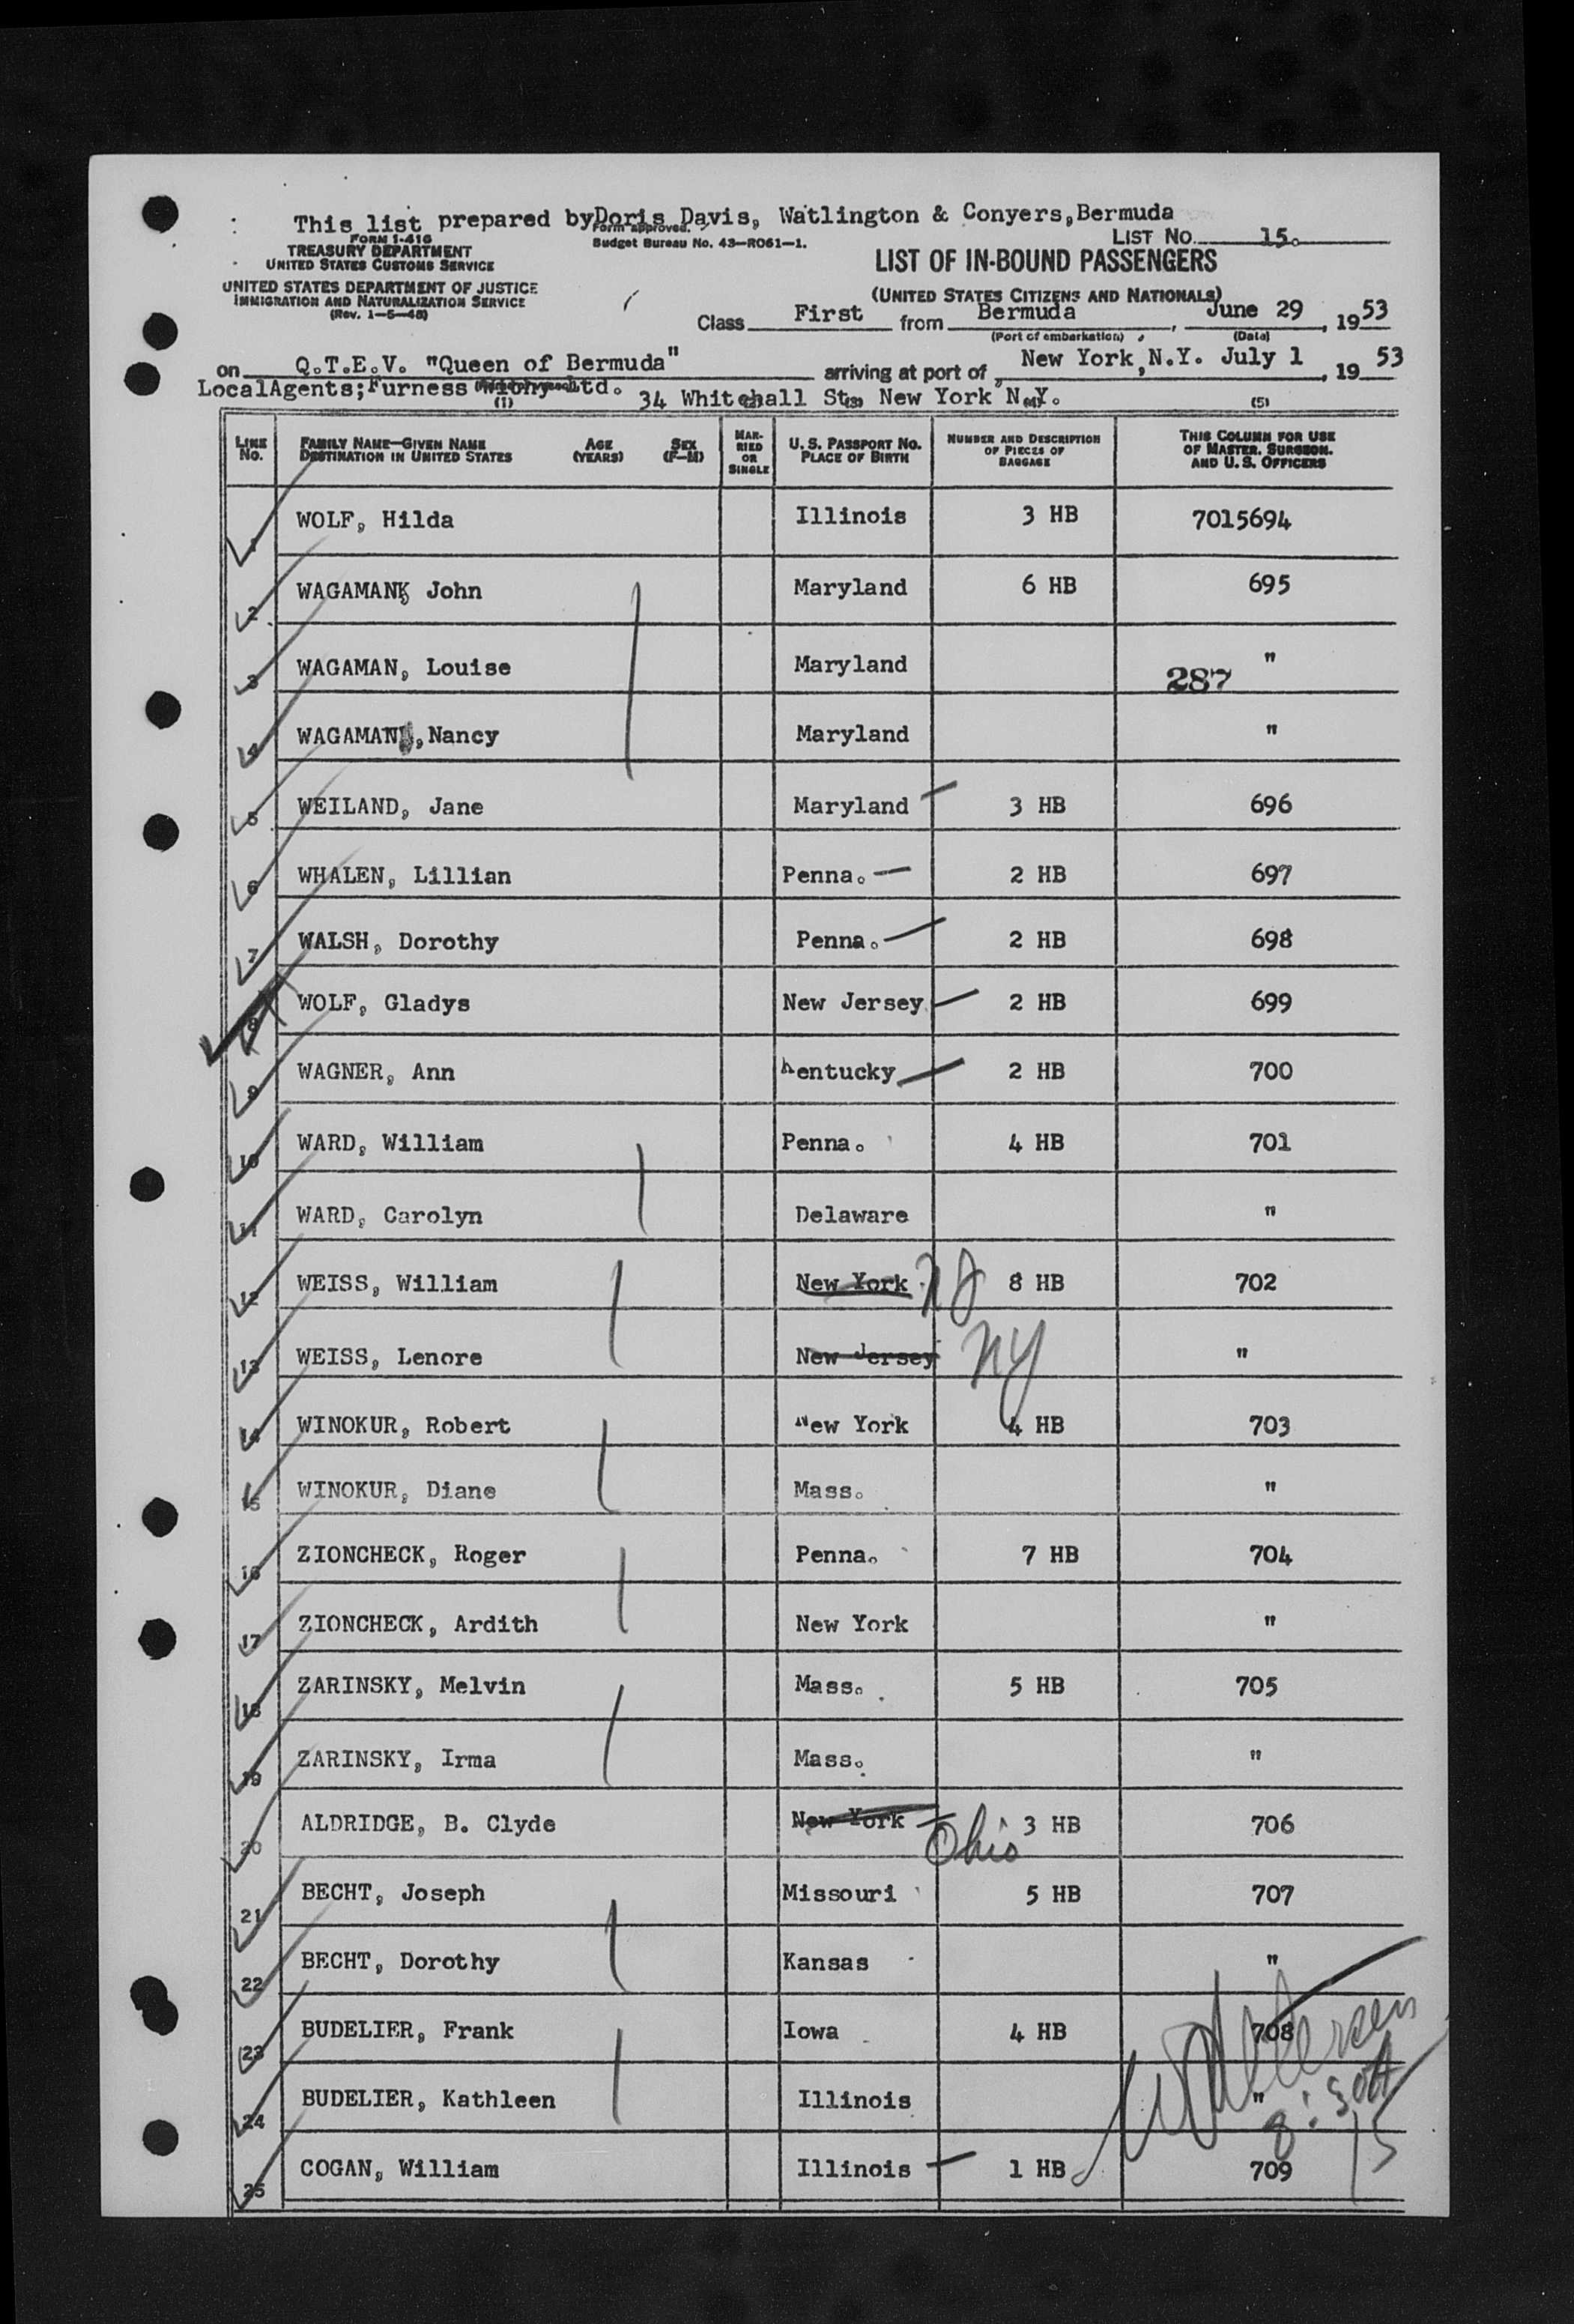 This list prepared byDoris Davis, Watlington & Conyers,Bermuda
FORM I-416
Form approved.
TREASURY DEPARTMENT
Budget Bureau No. 43—R061—1.
LIST NO. 15.
UNITED STATES CUSTOMS SERVICE
LIST OF IN-BOUND PASSENGERS
UNITED STATES DEPARTMENT OF JUSTICE
IMMIGRATION AND NATURALIZATION SERVICE
(UNITED STATES CITIZENS AND NATIONALS)
(Rev. 1—5—48)
Class First from Bermuda, June 29, 1953
(Port of embarkation) (Date)
on Q.T.E.V. "Queen of Bermuda" arriving at port of New York,N.Y. July 1, 1953
LocalAgents;Furness Withy Ltd. 34 Whitehall St. New York N.Y.
(1) (2) (3) (4) (5)
LINE NO. FAMILY NAME—GIVEN NAME DESTINATION IN UNITED STATES AGE (YEARS) SEX (F—M) MARRIED OR SINGLE U. S. PASSPORT NO. PLACE OF BIRTH NUMBER AND DESCRIPTION OF PIECES OF BAGGAGE THIS COLUMN FOR USE OF MASTER, SURGEON, AND U. S. OFFICERS
1 WOLF, Hilda Illinois 3 HB 7015694
2 WAGAMAN, John Maryland 6 HB 695
3 WAGAMAN, Louise Maryland "
287
4 WAGAMAN,Nancy Maryland "
5 WEILAND, Jane Maryland 3 HB 696
6 WHALEN, Lillian Penna. 2 HB 697
7 WALSH, Dorothy Penna. 2 HB 698
8 WOLF, Gladys New Jersey 2 HB 699
9 WAGNER, Ann Kentucky 2 HB 700
10 WARD, William Penna. 4 HB 701
11 WARD, Carolyn Delaware "
12 WEISS, William New York NJ 8 HB 702
13 WEISS, Lenore New Jersey NY "
14 WINOKUR, Robert New York 4 HB 703
15 WINOKUR, Diane Mass. "
16 ZIONCHECK, Roger Penna. 7 HB 704
17 ZIONCHECK, Ardith New York "
18 ZARINSKY, Melvin Mass. 5 HB 705
19 ZARINSKY, Irma Mass. "
20 ALDRIDGE, B. Clyde New York Ohio 3 HB 706
21 BECHT, Joseph Missouri 5 HB 707
22 BECHT, Dorothy Kansas "
23 BUDELIER, Frank Iowa 4 HB 708
24 BUDELIER, Kathleen Illinois "
25 COGAN, William Illinois 1 HB 709